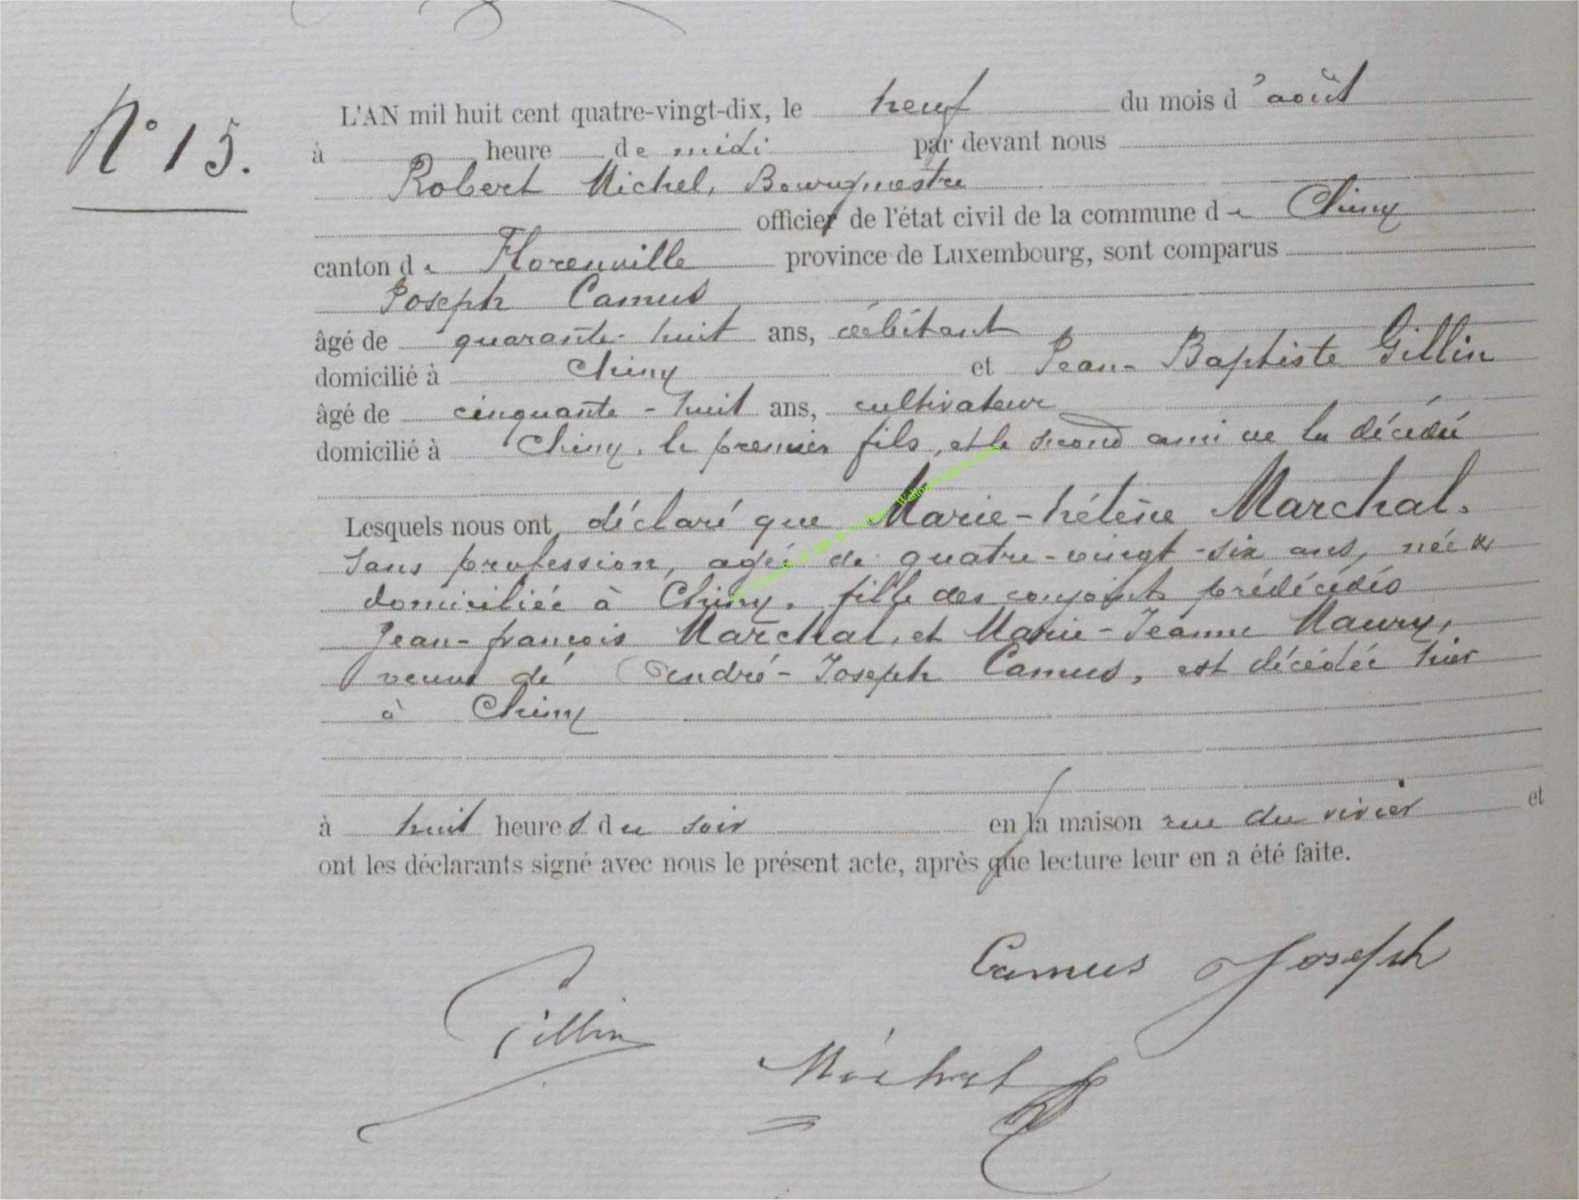 N° 15.
L'AN mil huit cent quatre-vingt-dix, le neuf du mois d'août
à heure de midi par devant nous
Robert Michel, Bourgmestre
officier de l'état civil de la commune de Chiny
canton de Florenville province de Luxembourg, sont comparus
Joseph Camus
âgé de quarante-huit ans, débitant
domicilié à Chiny et Jean-Baptiste Gillin
âgé de cinquante-huit ans, cultivateur
domicilié à Chiny, le premier fils, et le second ami de la décédée
Lesquels nous ont déclaré que Marie-hélène Marchal.
sans profession, agée de quatre-vingt-six ans, née &
domiciliée à Chiny, fille des conjoints prédécédés
Jean-françois Marchal, et Marie-Jeanne Maury,
veuve de André-Joseph Camus, est décédée hier
à Chiny
à huit heures du soir en la maison rue du vivier et
ont les déclarants signé avec nous le présent acte, après que lecture leur en a été faite.
Camus Joseph
Gillin
Michel